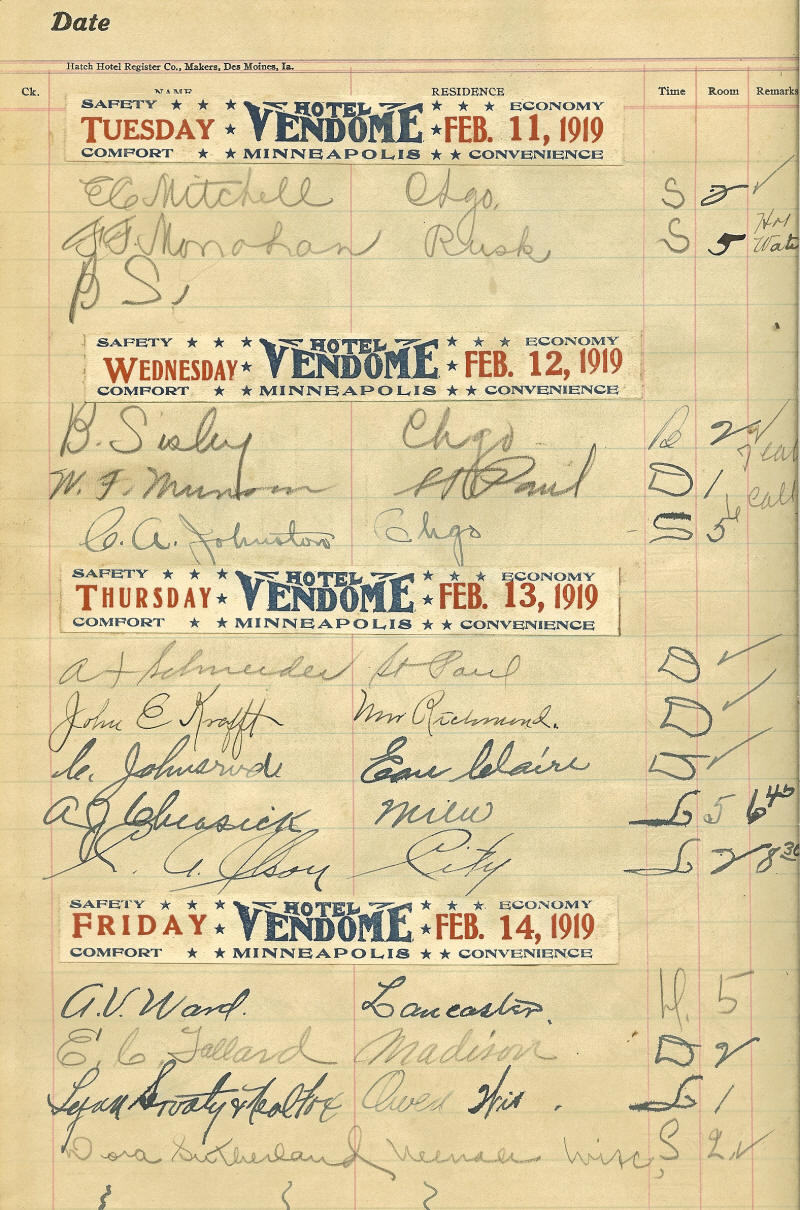 Date
Hatch Hotel Register Co., Makers, Des Moines, Ia.
Ck. NAME RESIDENCE Time Room Remarks
SAFETY ★ ★ ★ HOTEL ★ ★ ★ ECONOMY
TUESDAY ★ VENDOME ★ FEB. 11, 1919
COMFORT ★ ★ MINNEAPOLIS ★ ★ CONVENIENCE
E C Mitchell Chgo. S 2 ✓
F. F. Monahan Rusk S 5 Hot Wate
B S,
SAFETY ★ ★ ★ HOTEL ★ ★ ★ ECONOMY
WEDNESDAY ★ VENDOME ★ FEB. 12, 1919
COMFORT ★ ★ MINNEAPOLIS ★ ★ CONVENIENCE
B. Sisley Chgo B 2 ✓
W. F. Munson St Paul D 1 Call
C. A. Johnston Chgo S 5
SAFETY ★ ★ ★ HOTEL ★ ★ ★ ECONOMY
THURSDAY ★ VENDOME ★ FEB. 13, 1919
COMFORT ★ ★ MINNEAPOLIS ★ ★ CONVENIENCE
A Schneider St Paul D ✓
John E Krafft New Richmond. D ✓
C. Johnsrud Eau Claire D ✓
A J Cheasick Milw L 5 6 45
A. Olson City L 2 8 30
SAFETY ★ ★ ★ HOTEL ★ ★ ★ ECONOMY
FRIDAY ★ VENDOME ★ FEB. 14, 1919
COMFORT ★ ★ MINNEAPOLIS ★ ★ CONVENIENCE
A. V. Ward. Lancaster. H. 5
E. C. Tallard Madison D 2
Lynn Owen Wis. L 1
Dora Sutherland Neenah Wisc, S 2 ✓